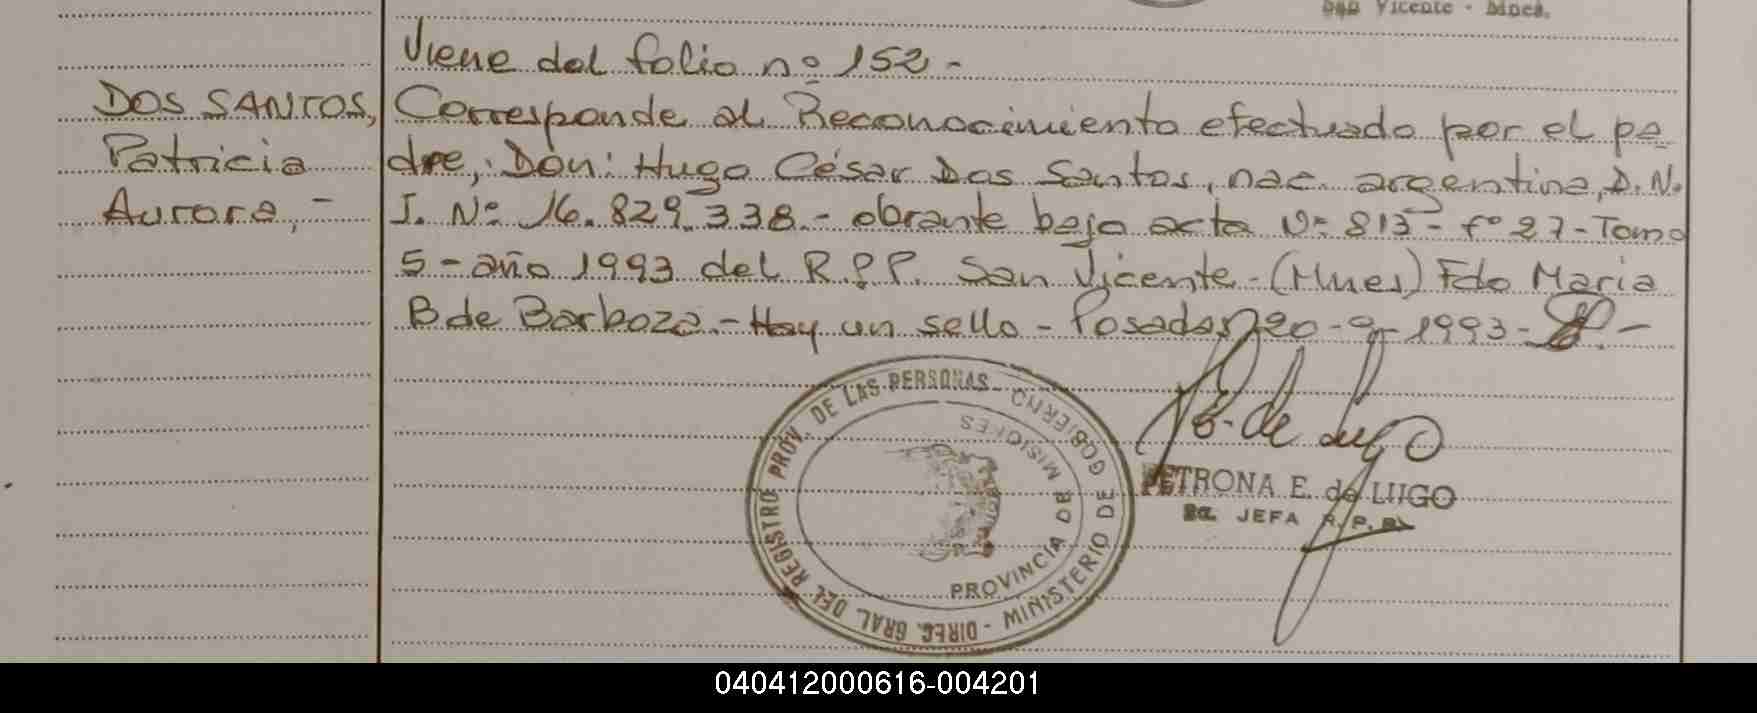 San Vicente - Mnes.
Viene del folio nº 152 -
DOS SANTOS,
Patricia
Aurora, -
Corresponde al Reconocimiento efectuado por el pa
dre, Don: Hugo César Dos Santos, nac. argentina, D.N.
I. Nº 16.829.338.- obrante bajo acta Nº 813 - fº 27 - Tomo
5 - año 1993 del R.P.P. San Vicente - (Mnes) Fdo Maria
B de Barboza. - Hay un sello - Posadas, 20-9-1993 -
DIREC. GRAL DEL REGISTRO PROV. DE LAS PERSONAS
MINISTERIO DE GOBIERNO
PROVINCIA DE MISIONES
E. de Lugo
PETRONA E. de LUGO
2a. JEFA R.P.P.
040412000616-004201